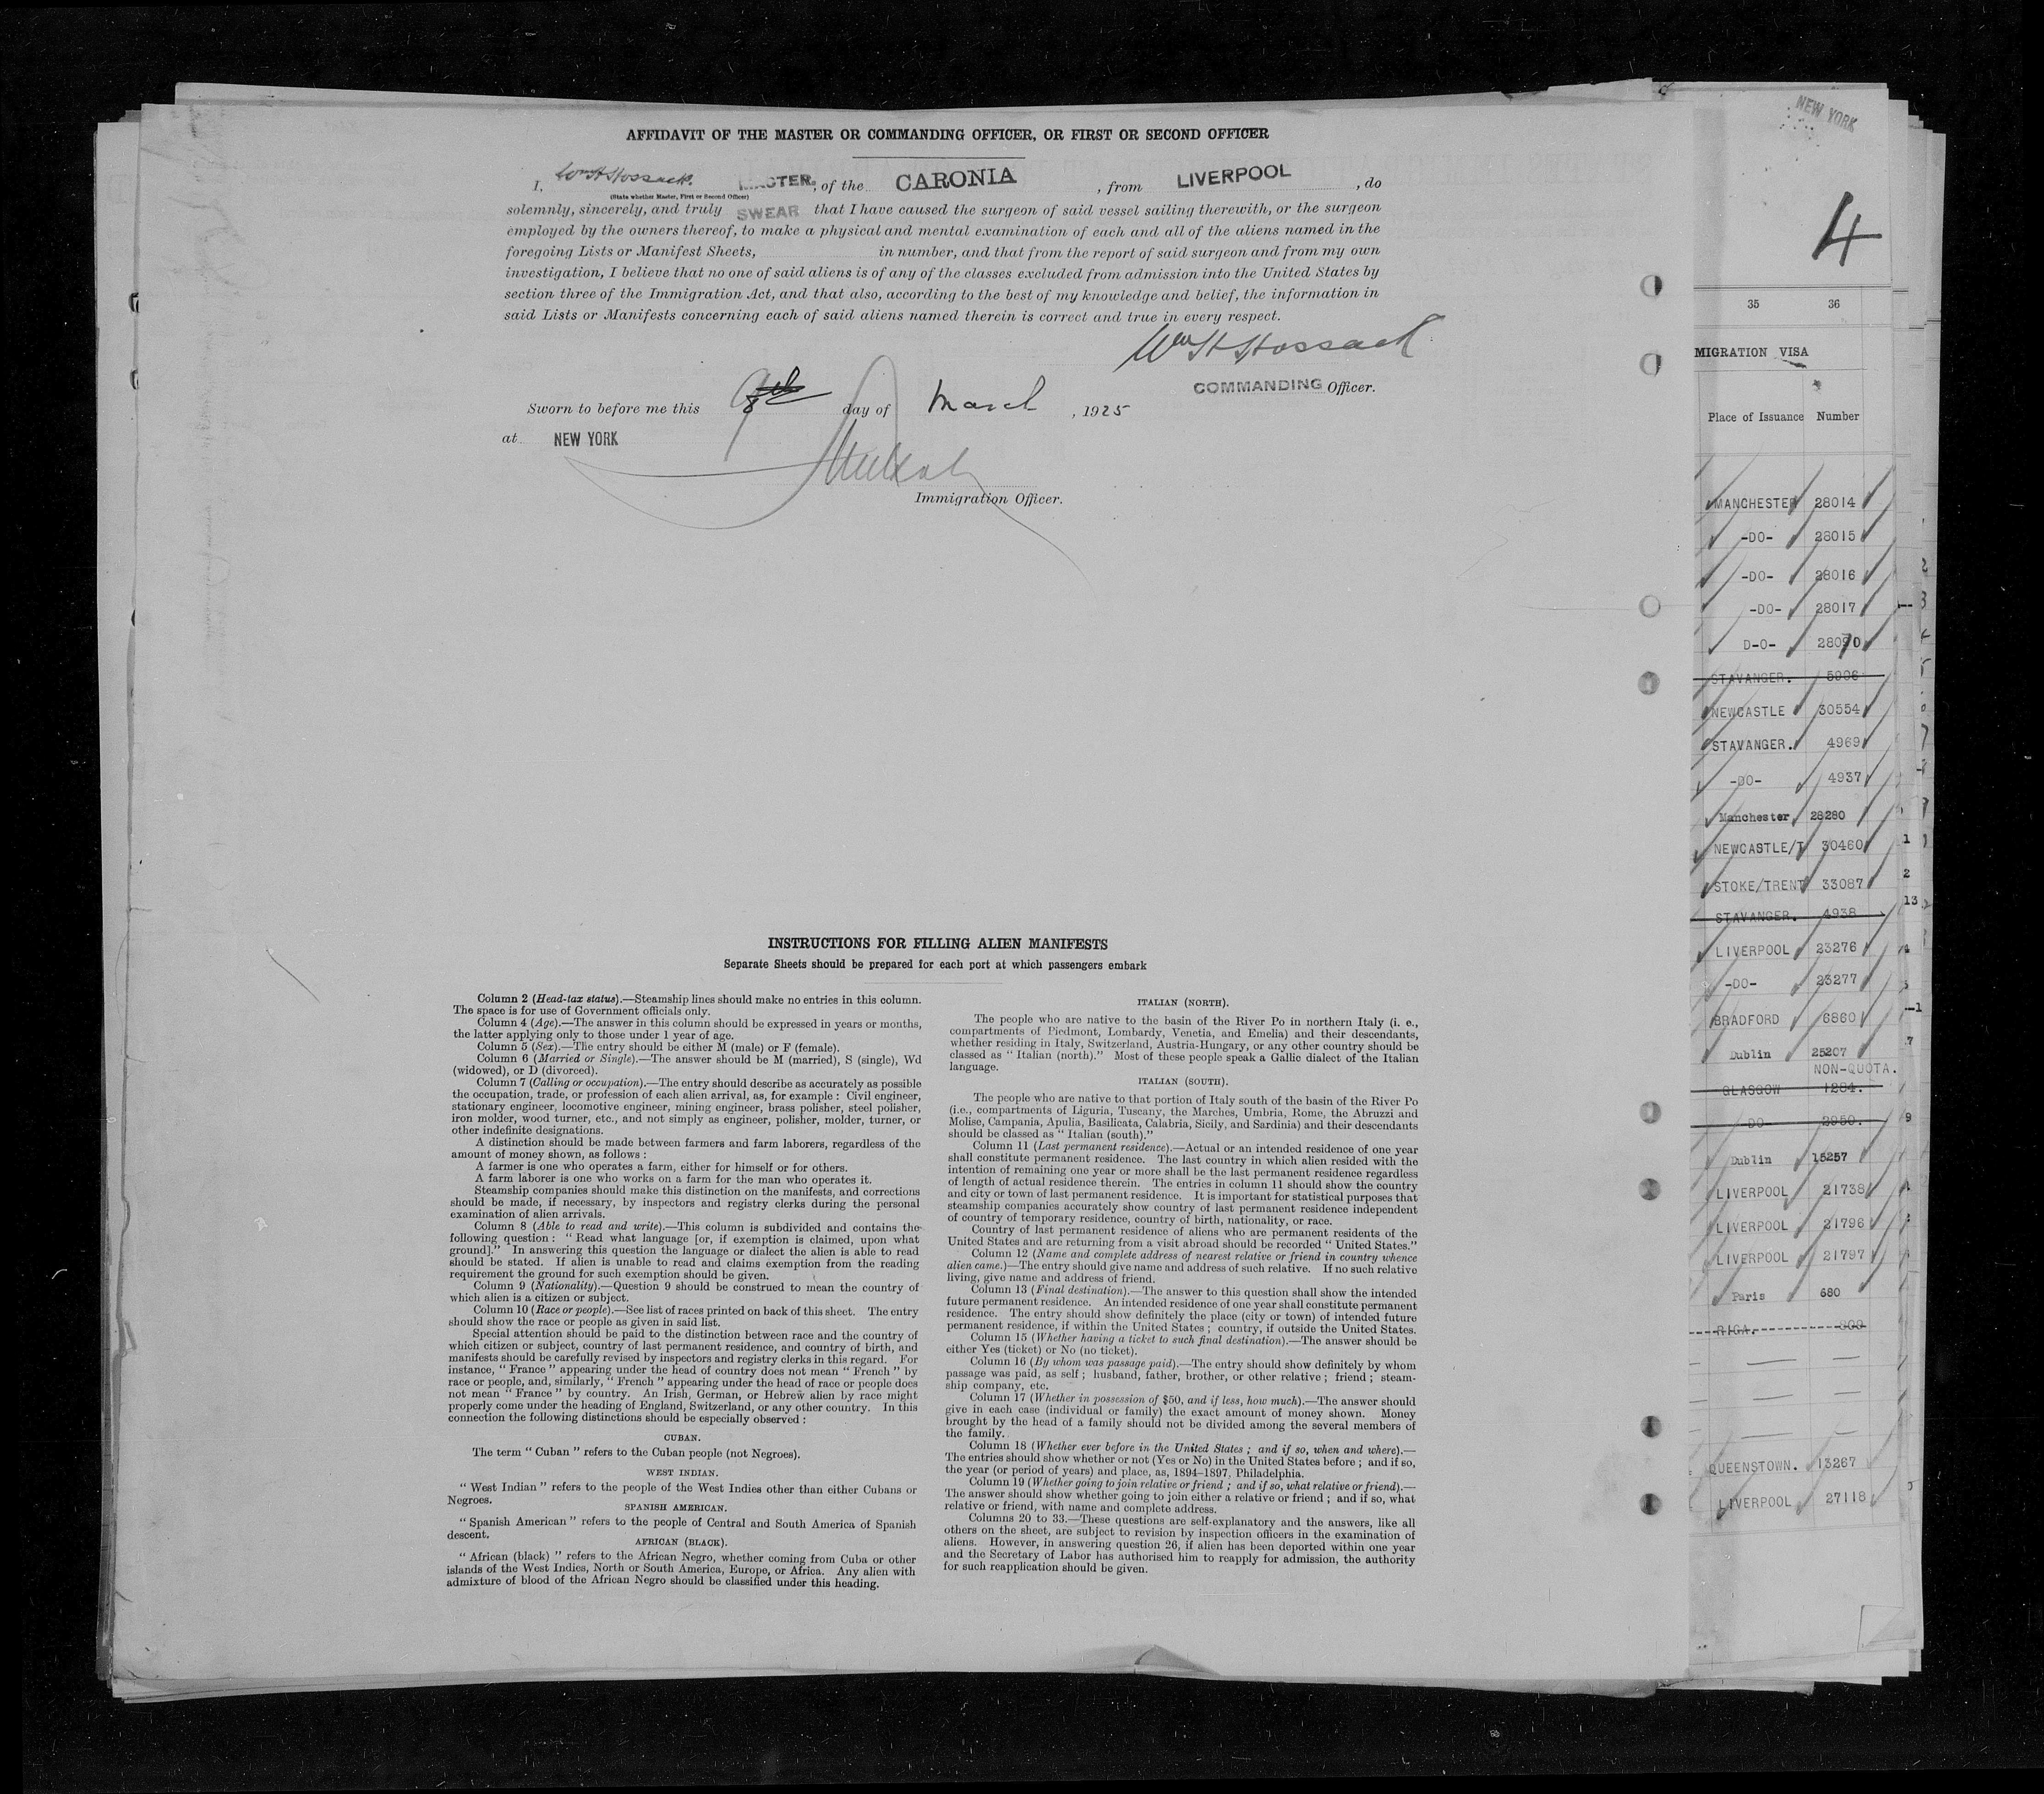 AFFIDAVIT OF THE MASTER OR COMMANDING OFFICER, OR FIRST OR SECOND OFFICER
I, Wm H Hossack. MASTER, of the CARONIA, from LIVERPOOL, do
(State whether Master, First or Second Officer)
solemnly, sincerely, and truly SWEAR that I have caused the surgeon of said vessel sailing therewith, or the surgeon
employed by the owners thereof, to make a physical and mental examination of each and all of the aliens named in the
foregoing Lists or Manifest Sheets, in number, and that from the report of said surgeon and from my own
investigation, I believe that no one of said aliens is of any of the classes excluded from admission into the United States by
section three of the Immigration Act, and that also, according to the best of my knowledge and belief, the information in
said Lists or Manifests concerning each of said aliens named therein is correct and true in every respect.
Wm H Hossack
COMMANDING Officer.
Sworn to before me this 9th day of March, 1925
at NEW YORK
Immigration Officer.
INSTRUCTIONS FOR FILLING ALIEN MANIFESTS
Separate Sheets should be prepared for each port at which passengers embark
Column 2 (Head-tax status).—Steamship lines should make no entries in this column.
The space is for use of Government officials only.
Column 4 (Age).—The answer in this column should be expressed in years or months,
the latter applying only to those under 1 year of age.
Column 5 (Sex).—The entry should be either M (male) or F (female).
Column 6 (Married or Single).—The answer should be M (married), S (single), Wd
(widowed), or D (divorced).
Column 7 (Calling or occupation).—The entry should describe as accurately as possible
the occupation, trade, or profession of each alien arrival, as, for example : Civil engineer,
stationary engineer, locomotive engineer, mining engineer, brass polisher, steel polisher,
iron molder, wood turner, etc., and not simply as engineer, polisher, molder, turner, or
other indefinite designations.
A distinction should be made between farmers and farm laborers, regardless of the
amount of money shown, as follows :
A farmer is one who operates a farm, either for himself or for others.
A farm laborer is one who works on a farm for the man who operates it.
Steamship companies should make this distinction on the manifests, and corrections
should be made, if necessary, by inspectors and registry clerks during the personal
examination of alien arrivals.
Column 8 (Able to read and write).—This column is subdivided and contains the
following question : " Read what language [or, if exemption is claimed, upon what
ground]." In answering this question the language or dialect the alien is able to read
should be stated. If alien is unable to read and claims exemption from the reading
requirement the ground for such exemption should be given.
Column 9 (Nationality).—Question 9 should be construed to mean the country of
which alien is a citizen or subject.
Column 10 (Race or people).—See list of races printed on back of this sheet. The entry
should show the race or people as given in said list.
Special attention should be paid to the distinction between race and the country of
which citizen or subject, country of last permanent residence, and country of birth, and
manifests should be carefully revised by inspectors and registry clerks in this regard. For
instance, " France " appearing under the head of country does not mean " French " by
race or people, and, similarly, " French " appearing under the head of race or people does
not mean " France " by country. An Irish, German, or Hebrew alien by race might
properly come under the heading of England, Switzerland, or any other country. In this
connection the following distinctions should be especially observed :
CUBAN.
The term " Cuban " refers to the Cuban people (not Negroes).
WEST INDIAN.
" West Indian " refers to the people of the West Indies other than either Cubans or
Negroes.
SPANISH AMERICAN.
" Spanish American " refers to the people of Central and South America of Spanish
descent.
AFRICAN (BLACK).
" African (black) " refers to the African Negro, whether coming from Cuba or other
islands of the West Indies, North or South America, Europe, or Africa. Any alien with
admixture of blood of the African Negro should be classified under this heading.
ITALIAN (NORTH).
The people who are native to the basin of the River Po in northern Italy (i. e.,
compartments of Piedmont, Lombardy, Venetia, and Emelia) and their descendants,
whether residing in Italy, Switzerland, Austria-Hungary, or any other country should be
classed as " Italian (north)." Most of these people speak a Gallic dialect of the Italian
language.
ITALIAN (SOUTH).
The people who are native to that portion of Italy south of the basin of the River Po
(i.e., compartments of Liguria, Tuscany, the Marches, Umbria, Rome, the Abruzzi and
Molise, Campania, Apulia, Basilicata, Calabria, Sicily, and Sardinia) and their descendants
should be classed as " Italian (south)."
Column 11 (Last permanent residence).—Actual or an intended residence of one year
shall constitute permanent residence. The last country in which alien resided with the
intention of remaining one year or more shall be the last permanent residence regardless
of length of actual residence therein. The entries in column 11 should show the country
and city or town of last permanent residence. It is important for statistical purposes that
steamship companies accurately show country of last permanent residence independent
of country of temporary residence, country of birth, nationality, or race.
Country of last permanent residence of aliens who are permanent residents of the
United States and are returning from a visit abroad should be recorded " United States."
Column 12 (Name and complete address of nearest relative or friend in country whence
alien came.)—The entry should give name and address of such relative. If no such relative
living, give name and address of friend.
Column 13 (Final destination).—The answer to this question shall show the intended
future permanent residence. An intended residence of one year shall constitute permanent
residence. The entry should show definitely the place (city or town) of intended future
permanent residence, if within the United States ; country, if outside the United States.
Column 15 (Whether having a ticket to such final destination).—The answer should be
either Yes (ticket) or No (no ticket).
Column 16 (By whom was passage paid).—The entry should show definitely by whom
passage was paid, as self ; husband, father, brother, or other relative ; friend ; steam-
ship company, etc.
Column 17 (Whether in possession of $50, and if less, how much).—The answer should
give in each case (individual or family) the exact amount of money shown. Money
brought by the head of a family should not be divided among the several members of
the family.
Column 18 (Whether ever before in the United States ; and if so, when and where).—
The entries should show whether or not (Yes or No) in the United States before ; and if so,
the year (or period of years) and place, as, 1894–1897, Philadelphia.
Column 19 (Whether going to join relative or friend ; and if so, what relative or friend).—
The answer should show whether going to join either a relative or friend ; and if so, what
relative or friend, with name and complete address.
Columns 20 to 33.—These questions are self-explanatory and the answers, like all
others on the sheet, are subject to revision by inspection officers in the examination of
aliens. However, in answering question 26, if alien has been deported within one year
and the Secretary of Labor has authorised him to reapply for admission, the authority
for such reapplication should be given.
NEW YORK
4
35 36
MIGRATION VISA
Place of Issuance Number
MANCHESTER 28014
-DO- 28015
-DO- 28016
-DO- 28017
D-O- 28090
STAVANGER. 5906
NEWCASTLE 30554
STAVANGER. 4969
-DO- 4937
Manchester 28280
NEWCASTLE/T 30460
STOKE/TRENT 33087
STAVANGER. 4938
LIVERPOOL 23276
-DO- 23277
BRADFORD 6860
Dublin 25207
NON-QUOTA.
GLASGOW 1284.
DO 2950.
Dublin 15257
LIVERPOOL 21738
LIVERPOOL 21796
LIVERPOOL 21797
Paris 680
RIGA.
QUEENSTOWN. 13267
LIVERPOOL 27118